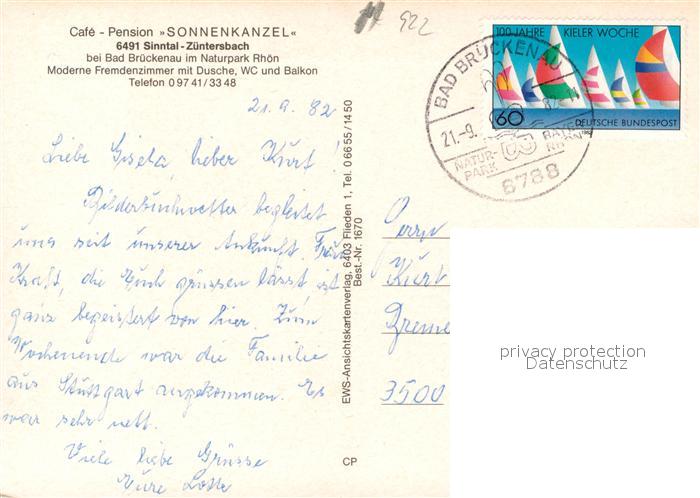 Café - Pension »SONNENKANZEL«
6491 Sinntal-Züntersbach
bei Bad Brückenau im Naturpark Rhön
Moderne Fremdenzimmer mit Dusche, WC und Balkon
Telefon 0 97 41 / 33 48
922
21.9.82
Liebe Gisela, lieber Kurt!
Bilderbuchwetter begleitet
uns seit unserer Ankunft. Frau
Kraft, die Euch grüssen lässt, ist
ganz begeistert von hier. Zum
Wochenende war die Familie
aus Stuttgart angekommen. Es
war sehr nett.
Viele liebe Grüsse
Eure Lotte
EWS-Ansichtskartenverlag, 6403 Flieden 1, Tel. 0 66 55 / 14 50
Best.-Nr. 1670
CP
100 JAHRE KIELER WOCHE
60 DEUTSCHE BUNDESPOST
1982
BAD BRÜCKENAU
21.-9.
NATUR-
PARK
BAYER.
RHÖN
8788
Herrn
Kurt
Breme
3500
privacy protection
Datenschutz